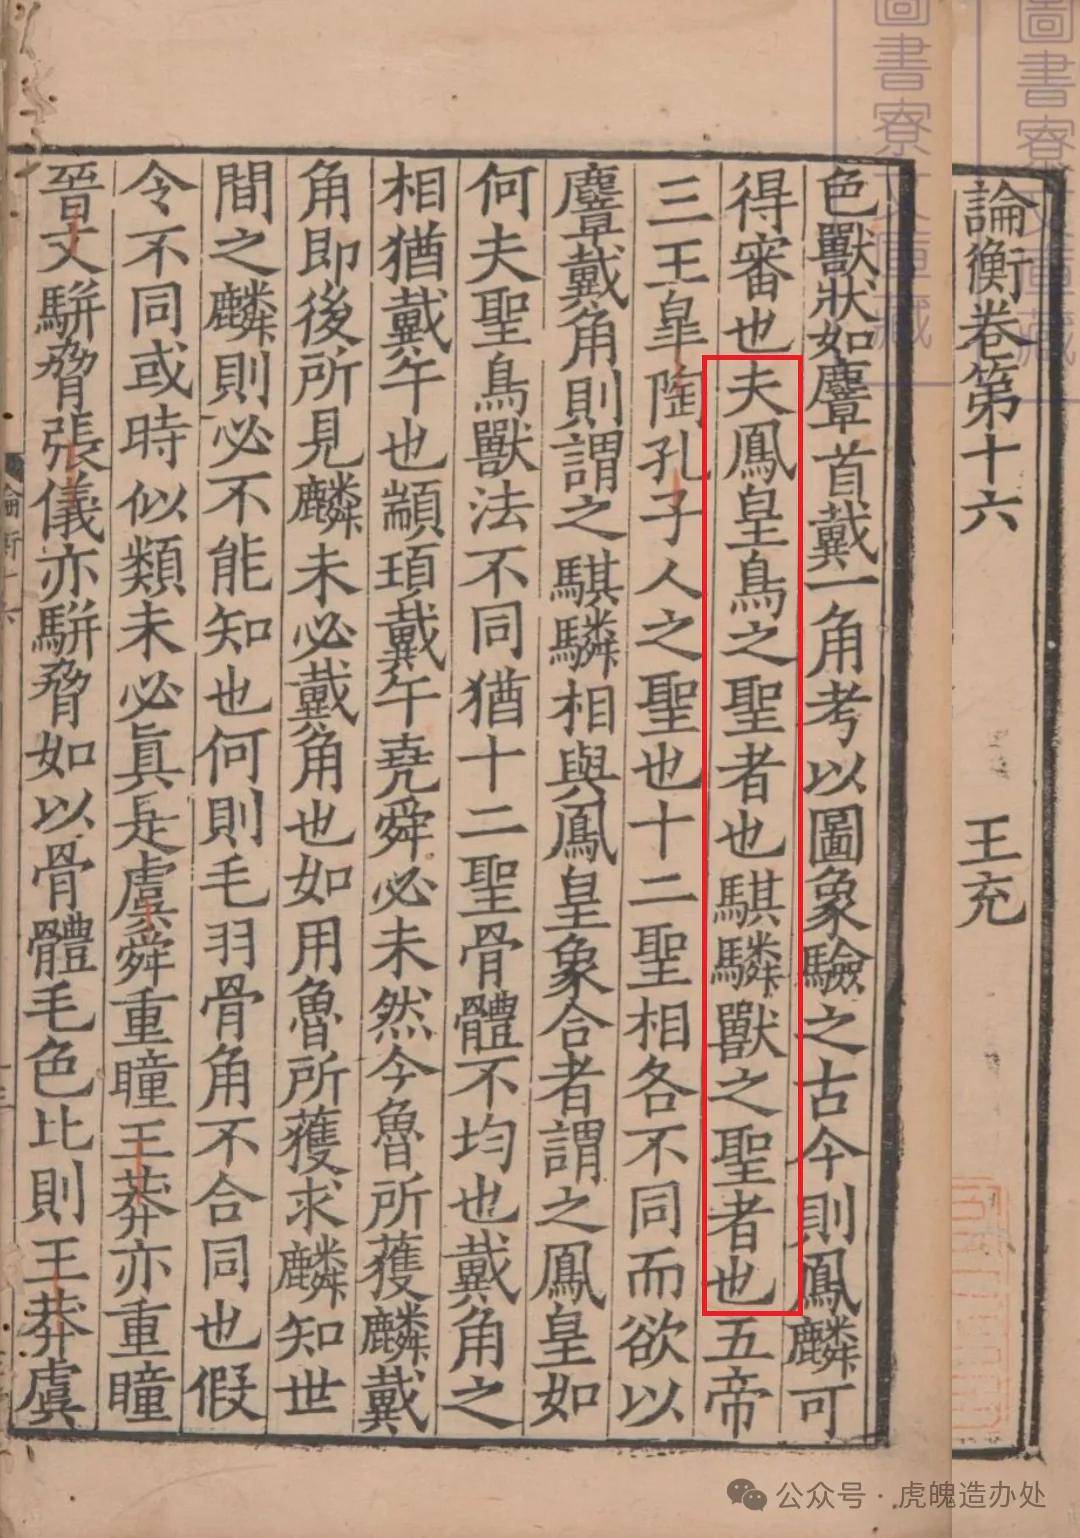 論衡卷第十六　王充
色獸狀如麞首戴一角考以圖象驗之古今則鳳麟可
得審也夫鳳皇鳥之聖者也騏驎獸之聖者也五帝
三王皐陶孔子人之聖也十二聖相各不同而欲以
麞戴角則謂之騏驎相與鳳皇象合者謂之鳳皇如
何夫聖鳥獸法不同猶十二聖骨體不均也戴角之
相猶戴午也顓頊戴午堯舜必未然今魯所獲麟戴
角即後所見麟未必戴角也如用魯所獲求麟知世
間之麟則必不能知也何則毛羽骨角不合同也假
令不同或時似類未必眞是虞舜重瞳王莽亦重瞳
晉文駢脅張儀亦駢脅如以骨體毛色比則王莽虞
圖書寮文庫藏
圖書寮文庫藏
公众号·虎魄造办处